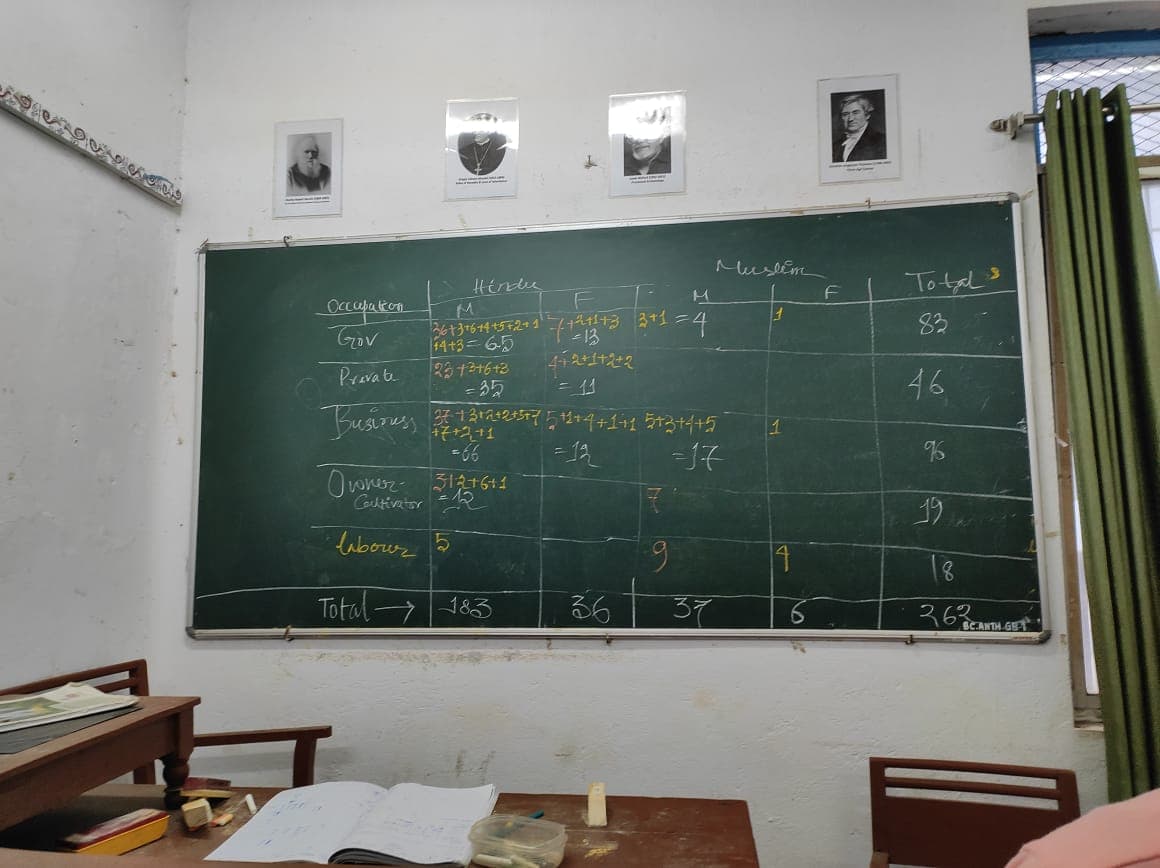 Hindu Muslim
Occupation M F M F Total
Gov 36+3+6+4+5+2+1 7+2+1+3 3+1 = 4 1 83
+4+3 = 65 = 13
Private 23+3+6+3 4+2+1+2+2 46
= 35 = 11
Business 37+3+2+2+5+7 5+1+4+1+1 5+3+4+5 1 96
+7+2+1
= 66 = 12 = 17
Owner- 3+2+6+1 7 19
Cultivator = 12
labour 5 9 4 18
Total → 183 36 37 6 262
BC.ANTH.GB